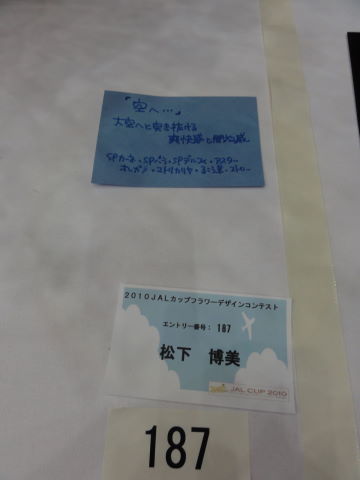 「空へ…」
大空へと突き抜ける
爽快感と開放感。
SPカーネ・SPバラ・SPデルフィ・アスター
2010JALカップフラワーデザインコンテスト
エントリー番号： 187
松下 博美
JAL CUP 2010
187